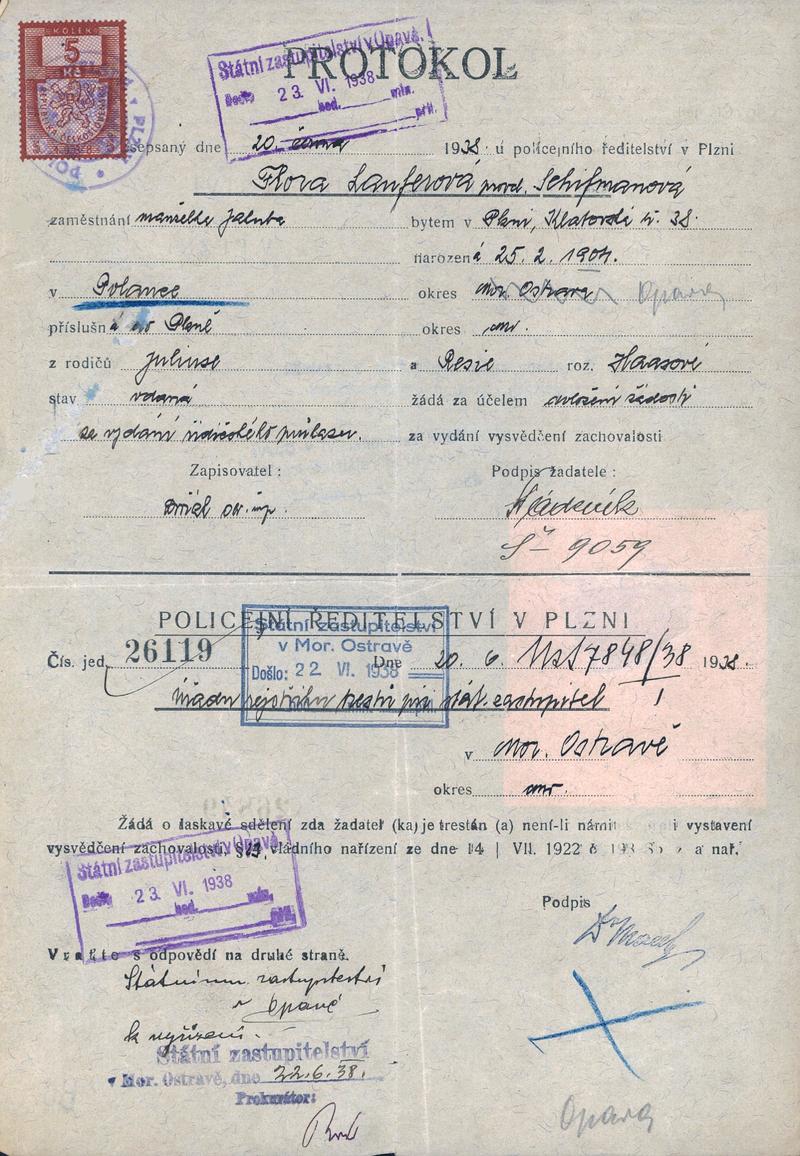 KOLEK
5
Kč
PROTOKOL
Státní zastupitelství v Opavě
Došlo 23. VI. 1938
hod. min.
příl.
sepsaný dne 20. června 1938 u policejního ředitelství v Plzni
Flora Lauferová prov. Schifmanová
zaměstnání manželka bytem v Plzni, Klatovská tř. 38.
narozená 25. 2. 1904.
v Polance okres Mor. Ostrava Opava
příslušná do Plzně okres
z rodičů Juliuse a Resie roz. Haasové
stav vdaná žádá za účelem doložení žádosti
se vydání řidičského průkazu. za vydání vysvědčení zachovalosti
Zapisovatel: Podpis žadatele:
9059
POLICEJNÍ ŘEDITELSTVÍ V PLZNI
Státní zastupitelství
v Mor. Ostravě
Došlo: 22 VI. 1938
Čís. jed. 26119 Dne 20. 6. 7848/38 1938.
Úřadu rejstříku trestů při stát. zastupitel
v Mor. Ostravě
okres
Žádá o laskavé sdělení zda žadatel (ka) je trestán (a) není-li námit i vystavení
vysvědčení zachovalosti § 13 vládního nařízení ze dne 14 | VII. 1922 č a nař.
Státní zastupitelství v Opavě
Došlo 23. VI. 1938
hod. min.
příl.
Podpis
Vraťte s odpovědí na druhé straně.
Státnímu zastupitelství
v Opavě
k vyřízení.
Státní zastupitelství
v Mor. Ostravě, dne 22.6.38.
Prokurátor:
Opava